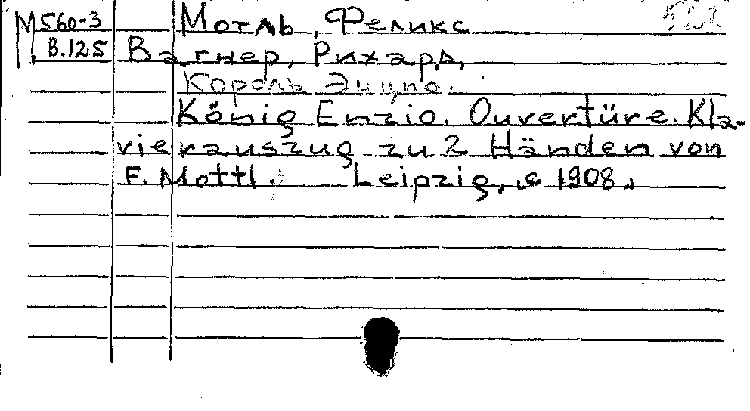 М 560-3 Мотль, Феликс
В.125 Вагнер, Рихард,
Король Энцио.
König Enzio. Ouvertüre. Kla-
vierauszug zu 2 Händen von
F. Mottl. Leipzig, c 1908.